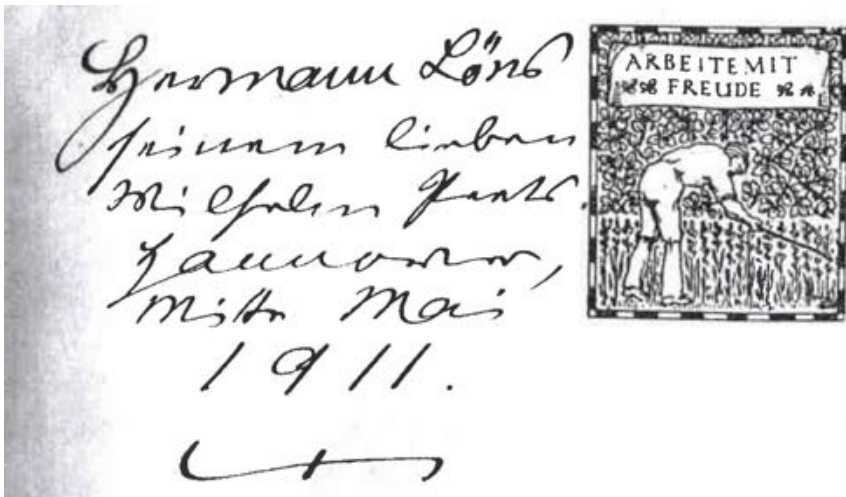 Hermann Löns
seinem lieben
Wilhelm Peets.
Hannover,
Mitte Mai
1911.
ARBEITE MIT
FREUDE